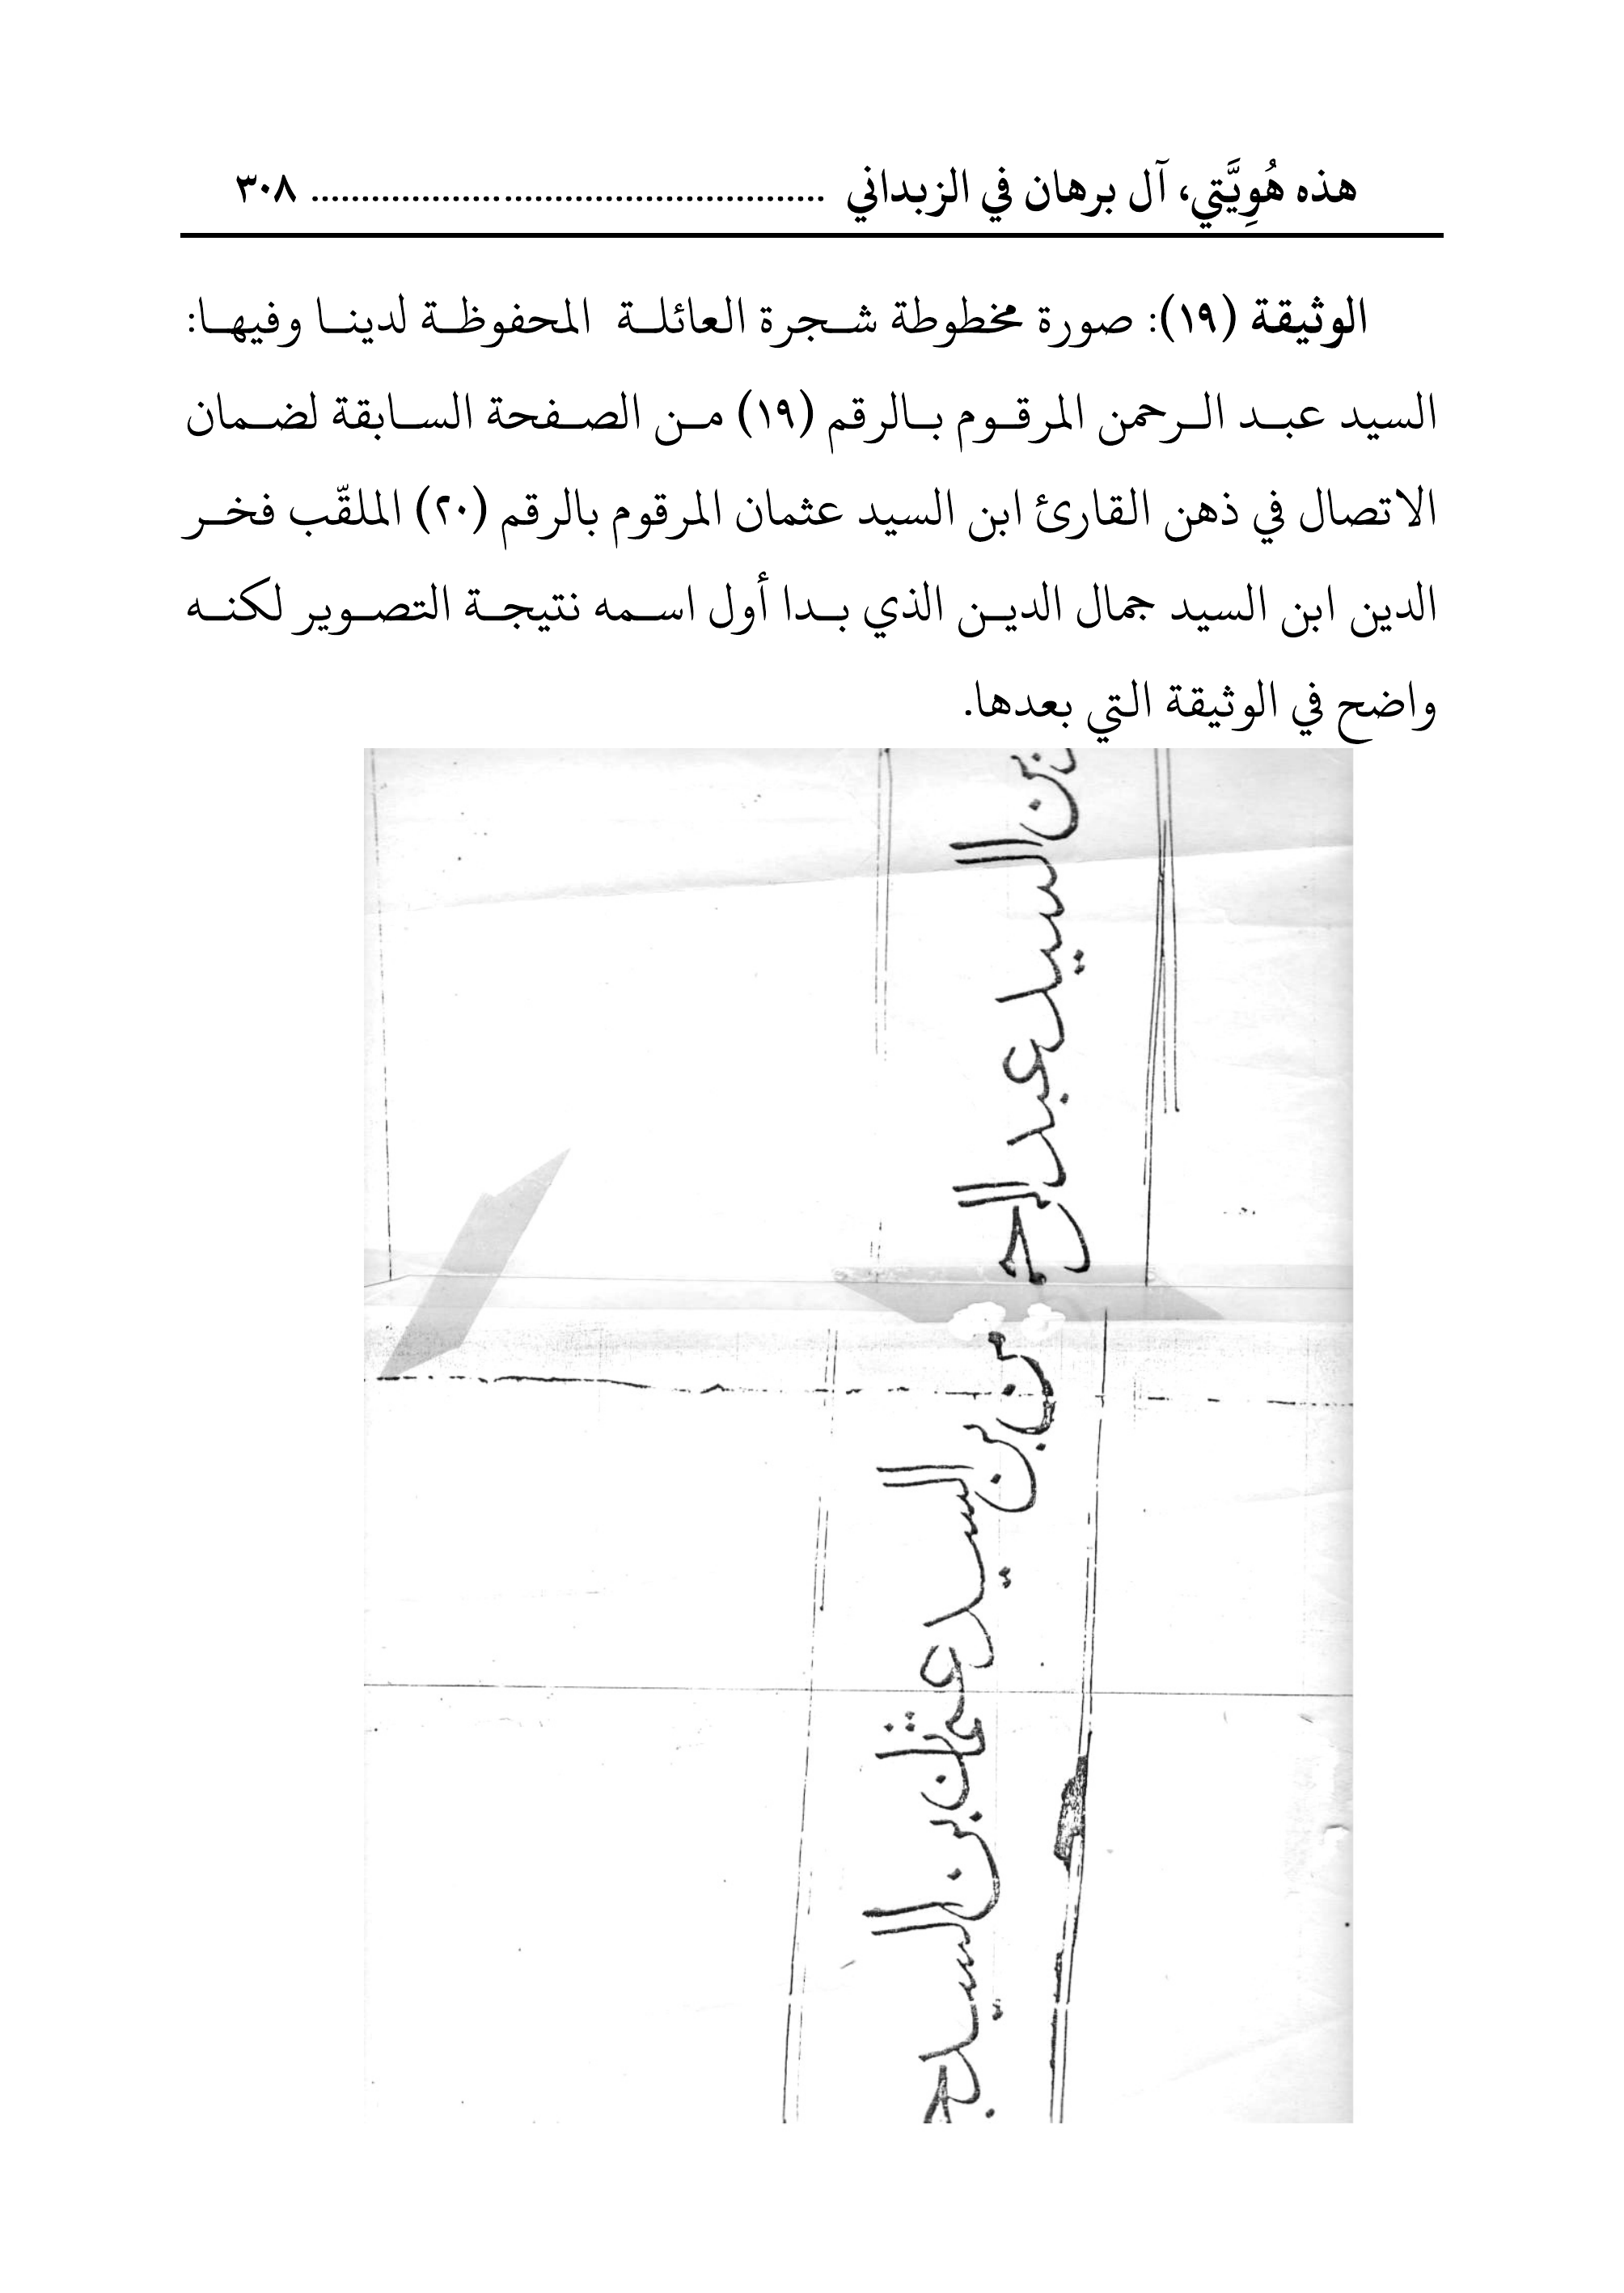 هذه هُوِيَّتي، آل برهان في الزبداني ................................................ ٣٠٨
الوثيقة (١٩): صورة مخطوطة شجرة العائلة المحفوظة لدينا وفيها:
السيد عبد الرحمن المرقوم بالرقم (١٩) من الصفحة السابقة لضمان
الاتصال في ذهن القارئ ابن السيد عثمان المرقوم بالرقم (٢٠) الملقّب فخر
الدين ابن السيد جمال الدين الذي بدا أول اسمه نتيجة التصوير لكنه
واضح في الوثيقة التي بعدها.
بن السيد عبد الرحمن بن السيد عثمان بن السيد جـ